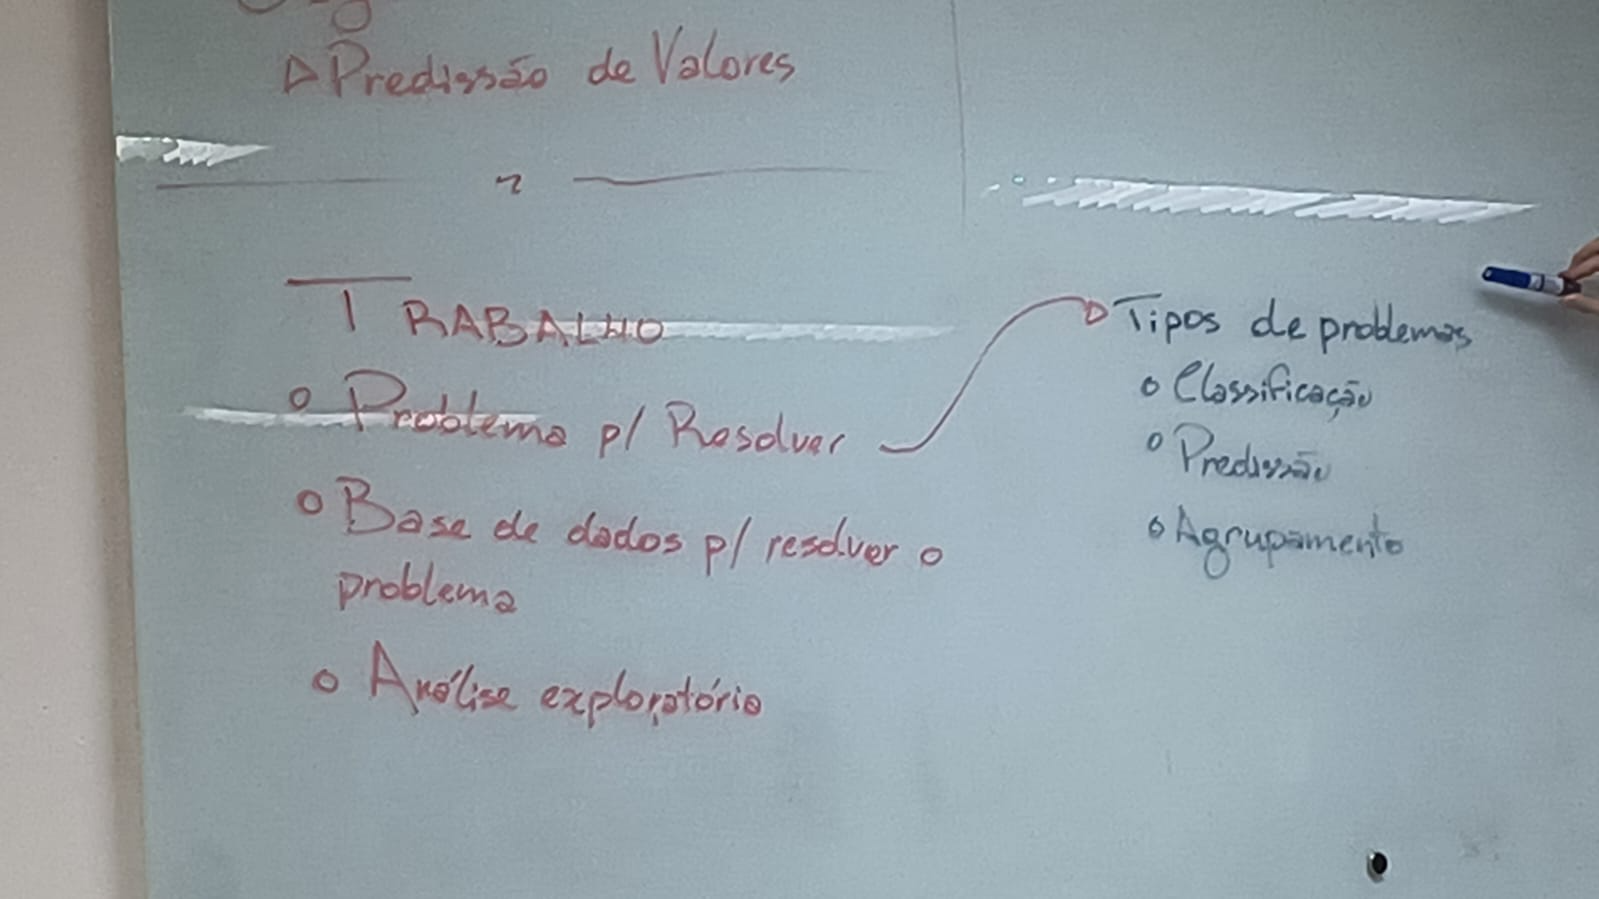 Predissão de Valores
TRABALHO
Problema p/ Resolver
Base de dados p/ resolver o
problema
Análise exploratória
Tipos de problemas
Classificação
Predissão
Agrupamento